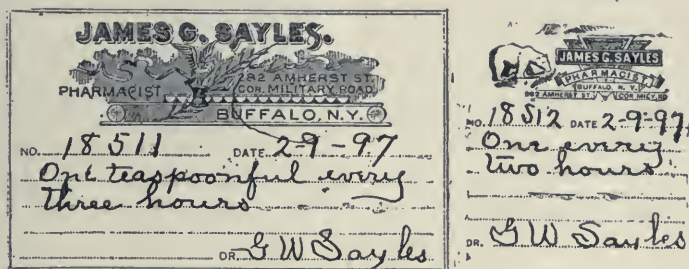 JAMES G. SAYLES.
PHARMACIST
282 AMHERST ST.
COR. MILITARY ROAD
BUFFALO, N.Y.
NO. 18511 DATE 2-9-97
One teaspoonful every
three hours
DR. G W Sayles
JAMES G. SAYLES
PHARMACIST
BUFFALO, N. Y.
282 AMHERST ST. COR MILY. RD
NO. 18512 DATE 2-9-97
One every
two hours
DR. G W Sayles